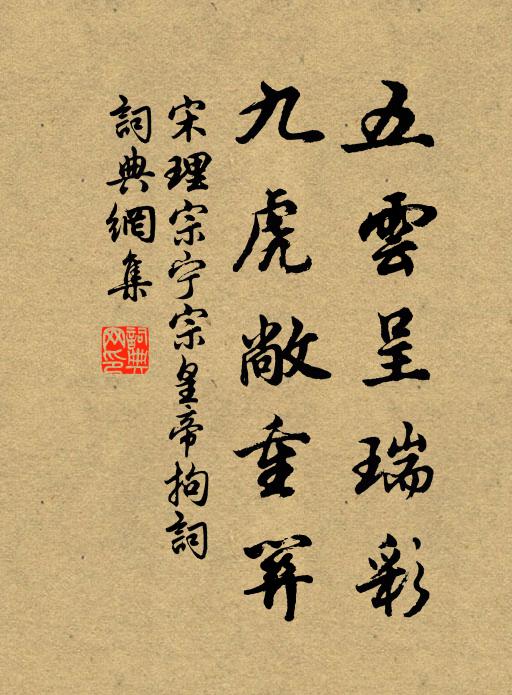 五雲呈瑞彩
九虎敞重關
宋理宗宁宗皇帝拘詞
詞典網集
詞典網印